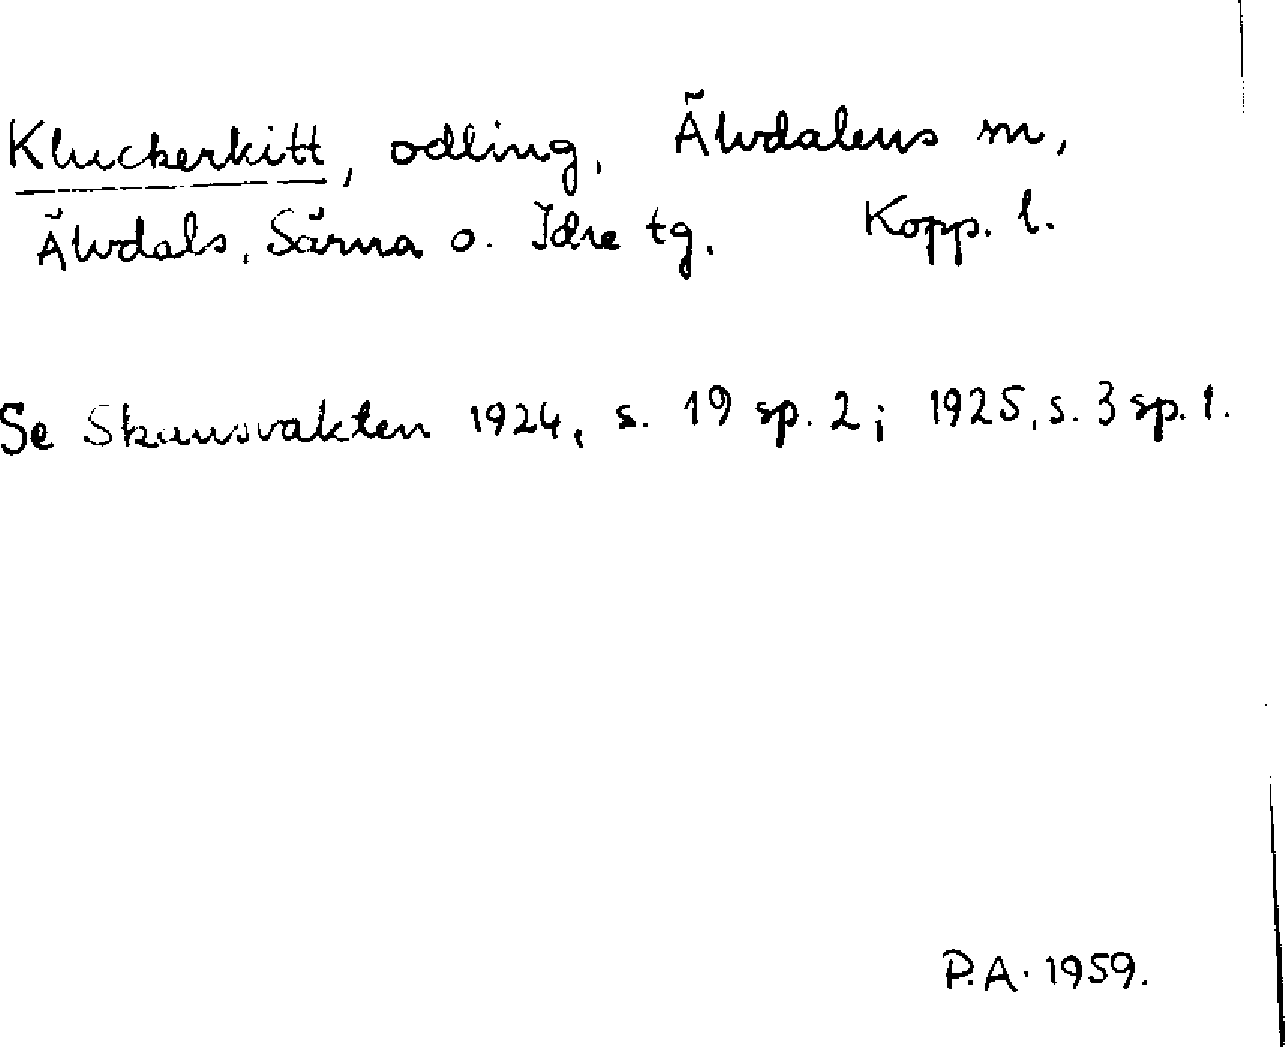 Kluckerkitt, odling, Älvdalens sn,
Älvdals, Särna o. Idre tg. Kopp. l.
Se Skansvakten 1924, s. 19 sp. 2; 1925, s. 3 sp. 1.
P.A. 1959.